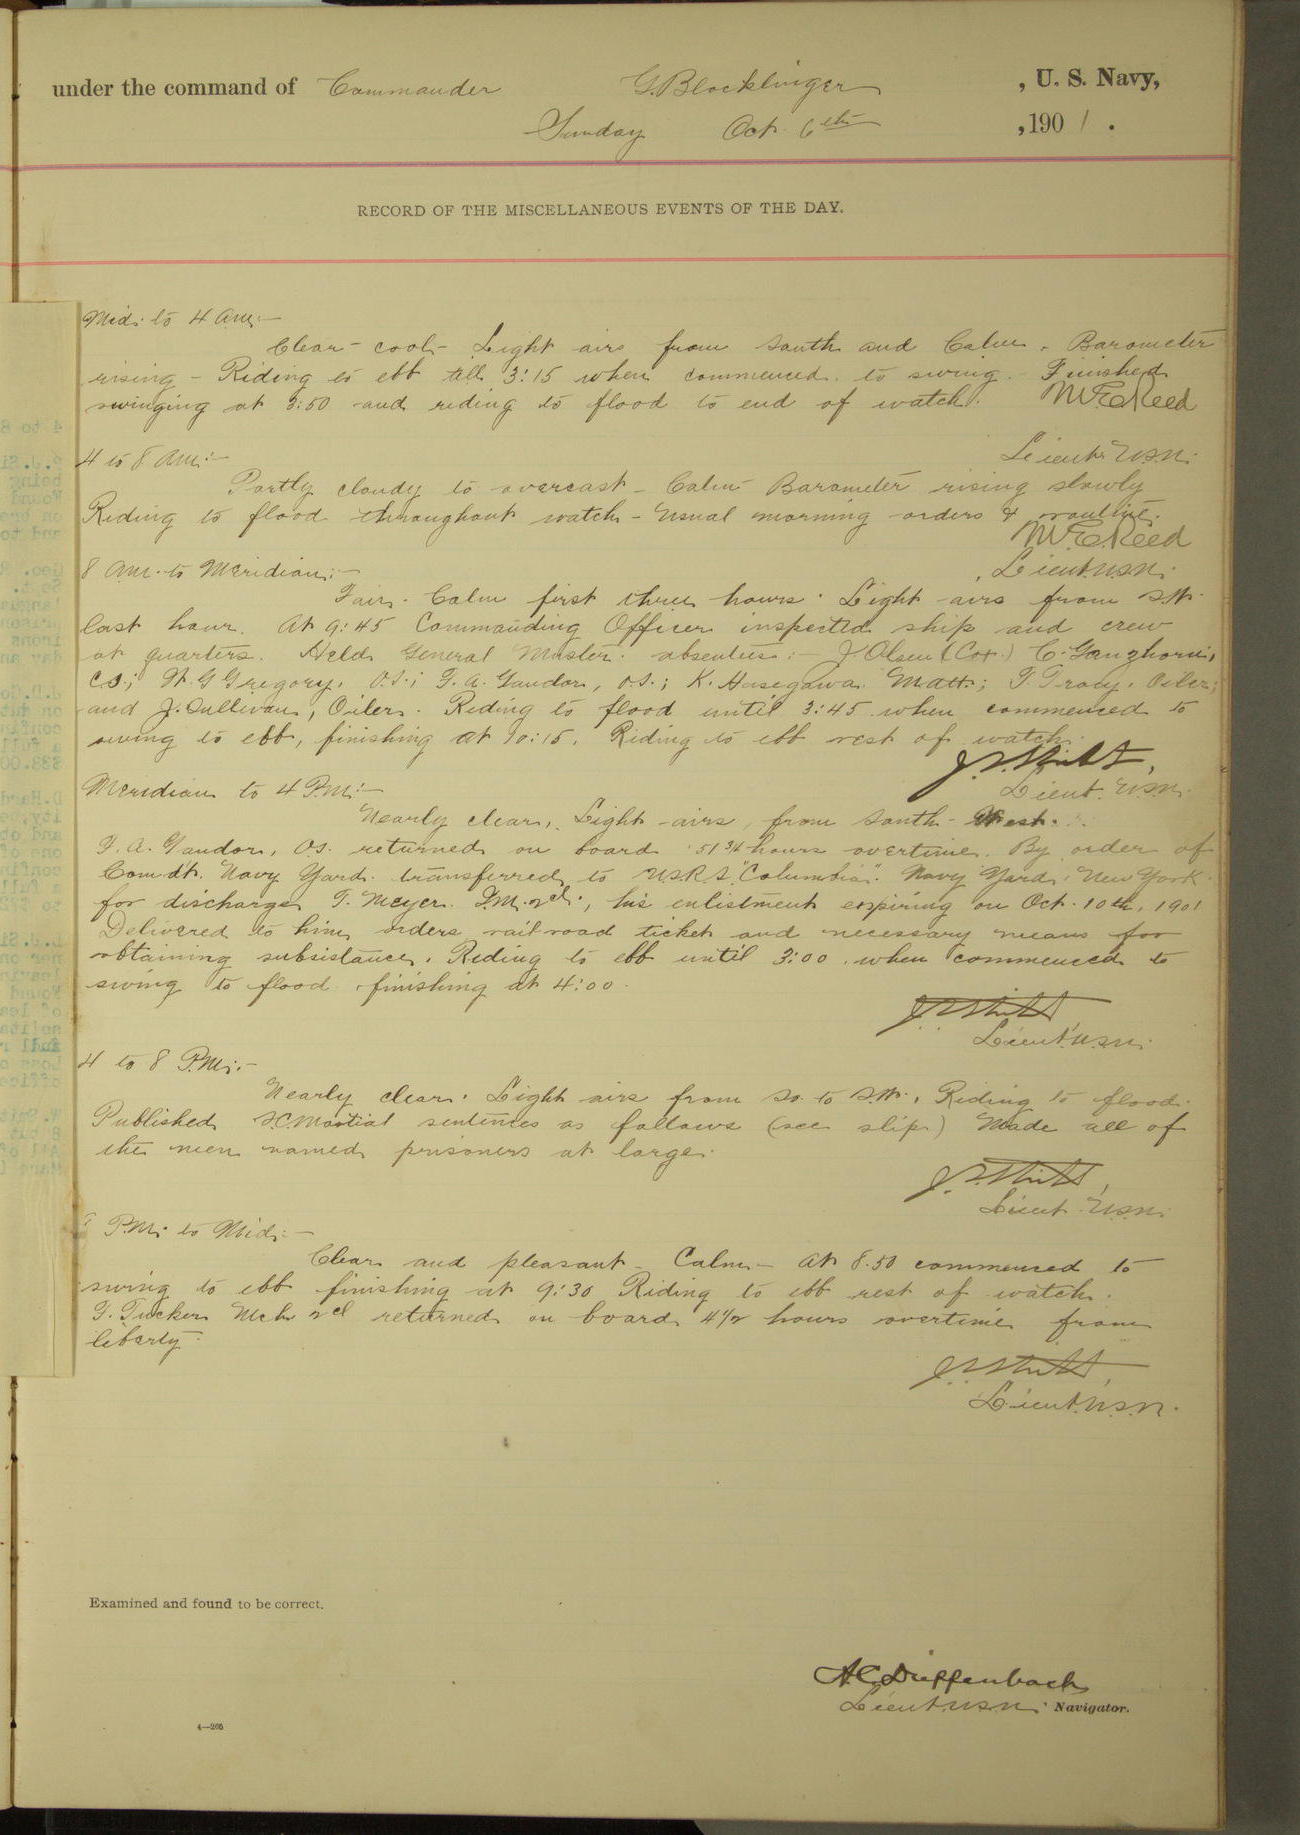 under the command of Commander G. Blocklinger, U. S. Navy,
Sunday Oct. 6th, 1901.
RECORD OF THE MISCELLANEOUS EVENTS OF THE DAY.
Mid: to 4 am:—
Clear - cool - Light airs from South and Calm. Barometer
rising - Riding to ebb till 3:15 when commenced to swing. Finished
swinging at 3:50 and riding to flood to end of watch. M.E. Reed
Lieut. U.S.N.
4 to 8 am:—
Partly cloudy to overcast - Calm - Barometer rising slowly
Riding to flood throughout watch - Usual morning orders & routine.
M.E. Reed
8 am. to Meridian:—
Lieut. U.S.N.
Fair. Calm first three hours. Light airs from S.W.
last hour. At 9:45 Commanding Officer inspected ship and crew
at quarters. Held General Muster. absentees:— J. Olsen (Cox.) C. Ganzhorn,
C.S.; W. G Gregory, O.S.; F. A. Gaudor, O.S.; K. Hasegawa Matt.; T. Tracy, Oiler;
and J. Sullivan, Oiler. Riding to flood until 3:45 when commenced to
swing to ebb, finishing at 10:15. Riding to ebb rest of watch.
Lieut. U.S.N.
Meridian to 4 P.M.:—
Nearly clear. Light airs, from South-West.
F. A. Gaudor, O.S. returned on board 51 3/4 hours overtime. By order of
Com'd't. Navy Yard. transferred to U.S.R.S. "Columbia". Navy Yard, New York.
for discharge T. Meyer. 2d., his enlistment expiring on Oct. 10th, 1901
Delivered to him, orders railroad ticket and necessary means for
obtaining subsistance. Riding to ebb until 3:00 when commenced to
swing to flood finishing at 4:00.
Lieut. U.S.N.
4 to 8 P.M.:—
Nearly clear. Light airs from So. to S.W. Riding to flood.
Published S.C. Martial sentences as follows (see slip) Made all of
the men named prisoners at large.
Lieut. U.S.N.
P.M. to Mid:—
Clear and pleasant - Calm - At 8.50 commenced to
swing to ebb finishing at 9:30 Riding to ebb rest of watch.
F. Tucker Mch 2d returned on board 4 1/2 hours overtime from
liberty.
Lieut. U.S.N.
Examined and found to be correct.
A.C. Dieffenbach
Lieut. U.S.N. Navigator.
4—205